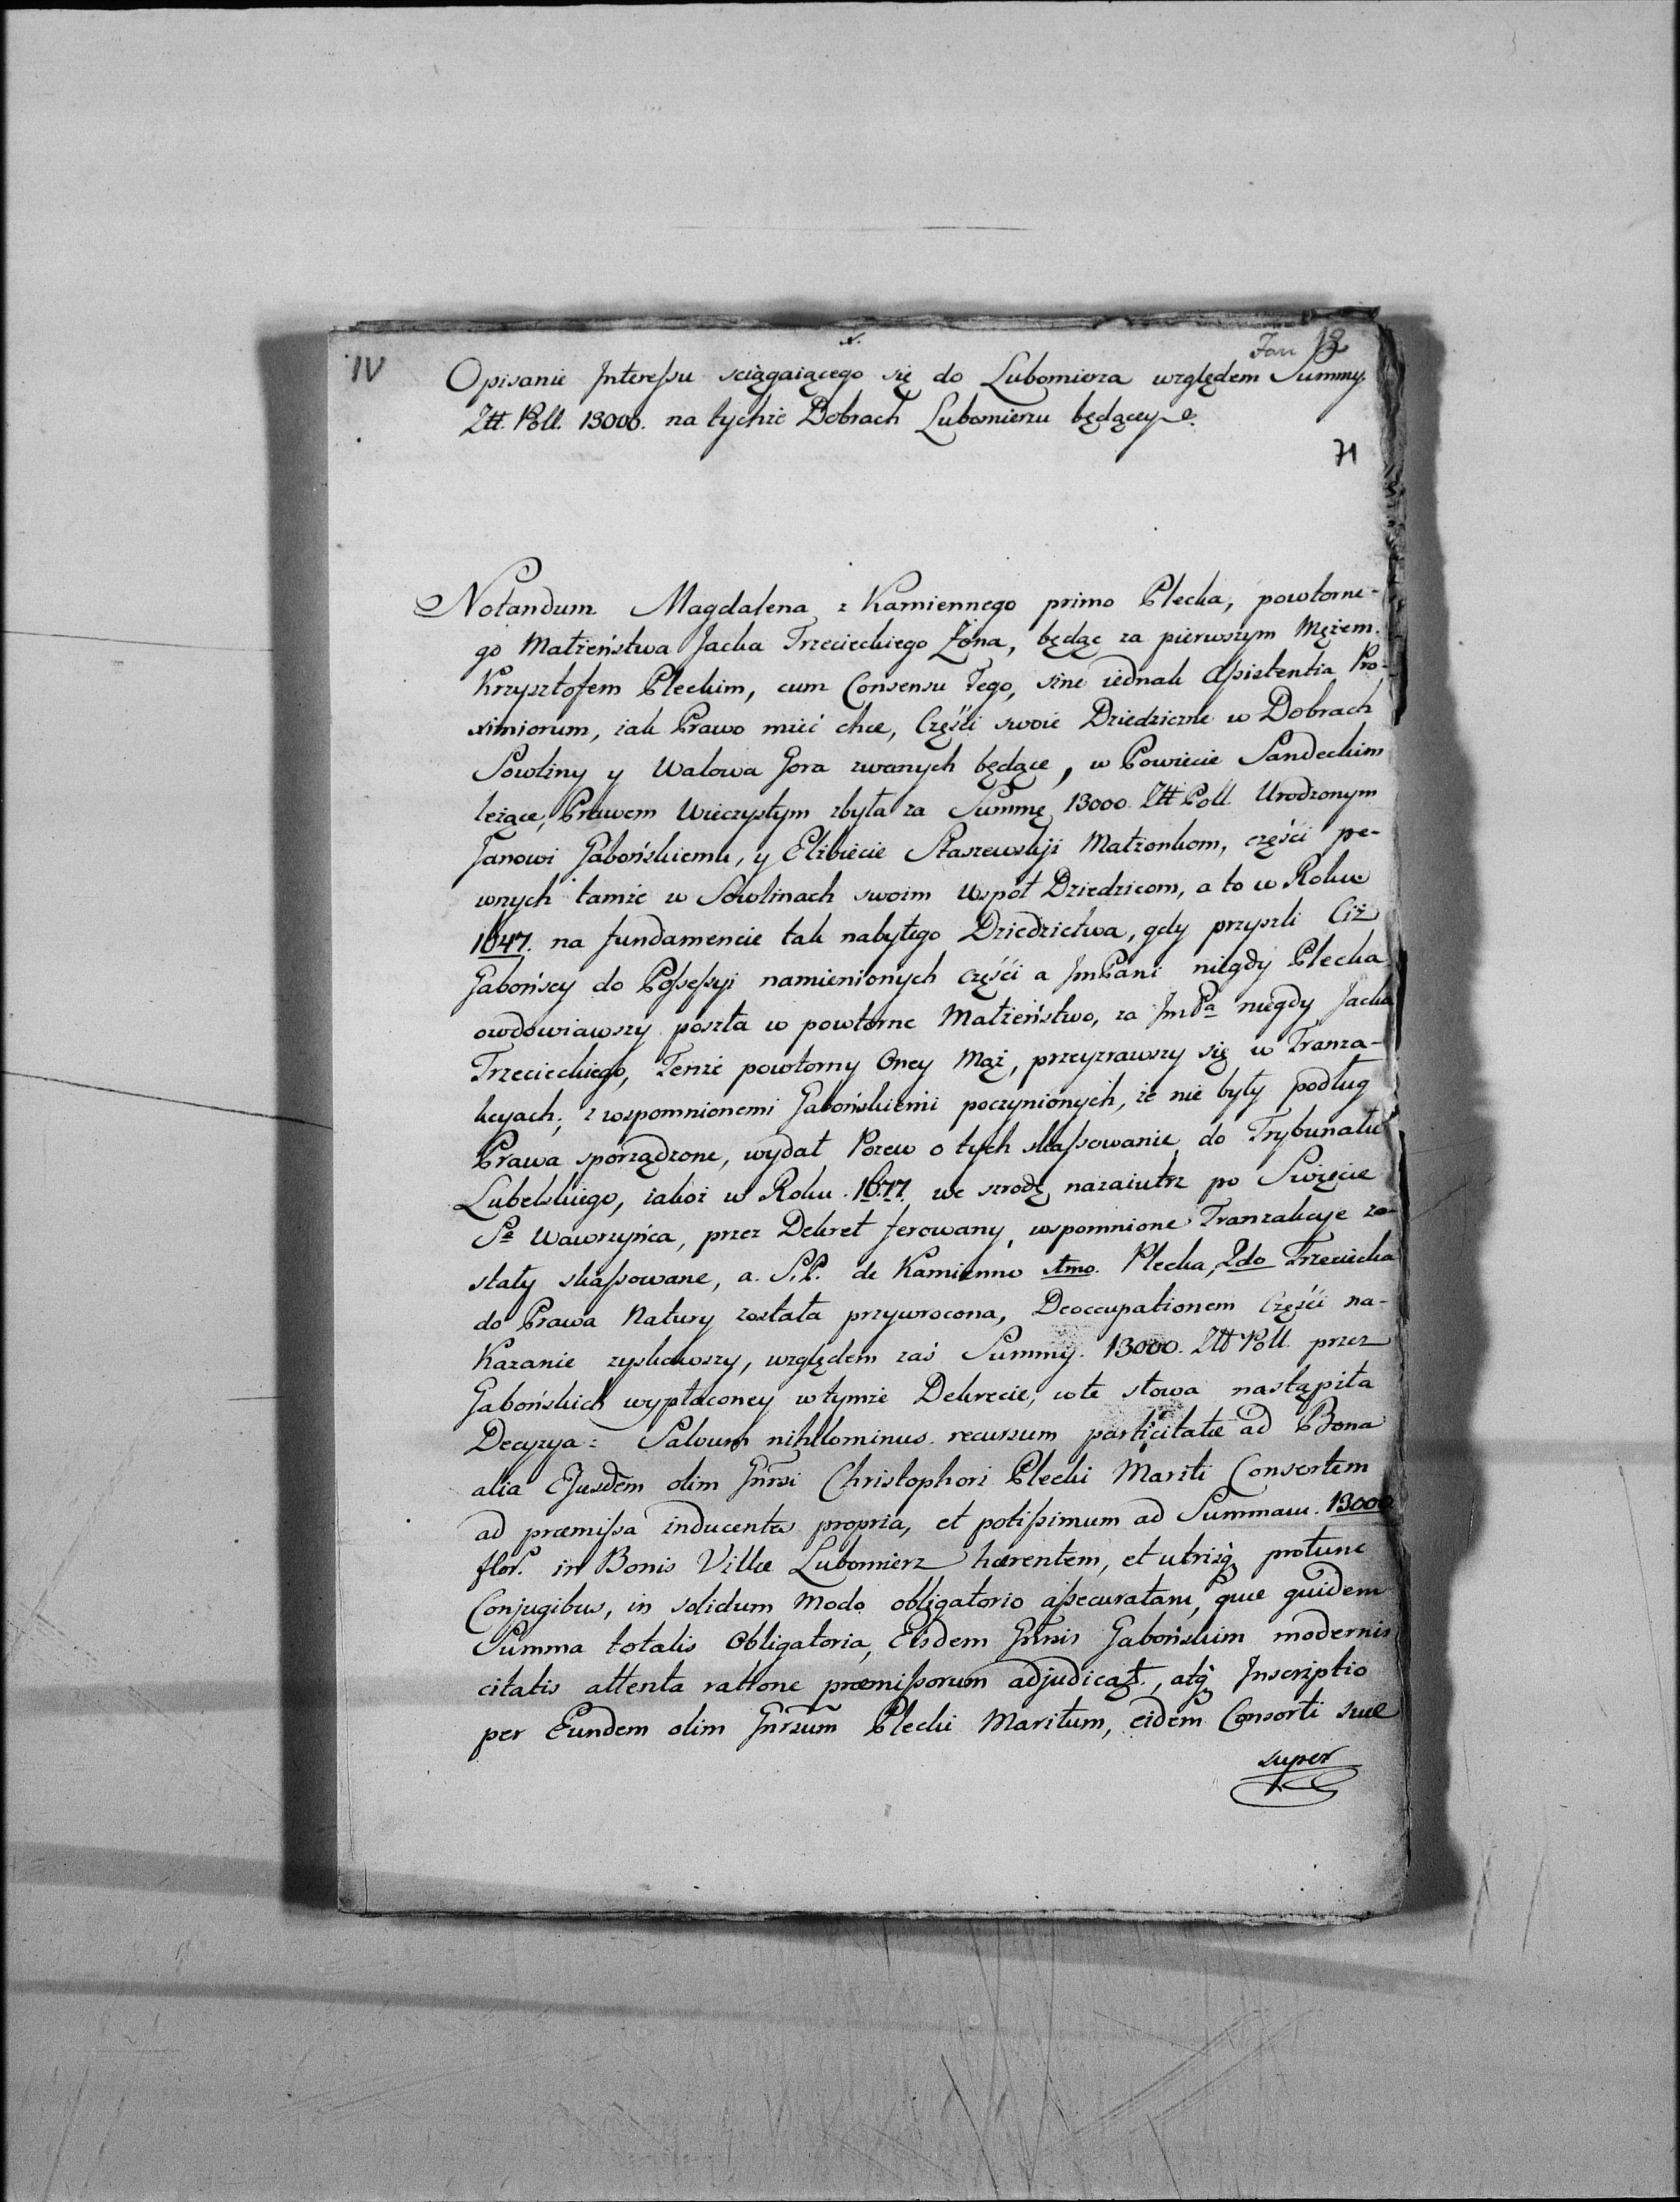 IV
Fasc 12
Opisanie Interessu sciągaiącego się do Lubomierza względem Summy
Ztt. Poll. 13000. na tychże Dobrach Lubomierzu będącey
71
Notandum Magdalena z Kamiennego primo Plecka, powtorne-
go Małżeństwa Jacka Trzecieckiego Żona, będąc za pierwszym Mężem
Krzysztofem Pleckim, cum Consensu Jego, sine iednak Assistentia Pro-
ximiorum, iak Prawo mieć chce, Częśći swoie Dziedziczne w Dobrach
Sowliny y Walowa Gora zwanych będące, w Powiecie Sandeckim
leżące, Prawem Wieczystym zbyła za Summę 13000. Ztt Poll. Urodzonym
Janowi Gabońskiemu, y Elżbiecie Staszewskiji Małżonkom, części pe-
wnych tamże w Sowlinach swoim Wspoł Dziedzicom, a to w Roku
1647. na fundamencie tak nabytego Dziedzictwa, gdy przyszli Ciż
Gabońscy do Possessyi namienionych Częśći a ImPani niegdy Plecka
owdowiawszy poszła w powtorne Małżeństwo, za ImPa niegdy Jacka
Trzecieckiego, Tenże powtorny Oney Mąż, przeyzrawszy się w Tranza-
kcyach, z wspomnionemi Gabońskiemi poczynionych, że nie były podług
Prawa sporządzone, wydał Pozew o tych skassowanie do Trybunału
Lubelskiego, iakoż w Roku 1677. we srodę nazaiutrz po Swięcie
Sº Wawrzyńca, przez Dekret ferowany, wspomnione Tranzakcye zo-
stały skassowane, a. S.P. de Kamienno 1mo. Plecka, 2do Trzeciecka
do Prawa Natury została przywrocona, Deoccupationem Częśći na-
Kazanie zyskawszy, względem zaś Summy 13000. Ztt Poll. przez
Gabońskich wypłaconey w tymże Dekrecie, w te słowa nastąpiła
Decyzya: Salvum nihilominus recursum parti citatæ ad Bona
alia Ejusdem olim Gnrsi Christophori Plecki Mariti Consortem
ad præmissa inducentis propria, et potissimum ad Summam 13000
flor. in Bonis Villæ Lubomierz hærentem, et utrisq protunc
Conjugibus, in solidum Modo obligatorio assecuratam, quæ quidem
Summa totalis Obligatoria, Eisdem Gnrsis Gabońskim modernis
citatis attenta ratione præmissorum adjudicat., atq Inscriptio
per Eundem olim Gnrsum Plecki Maritum, eidem Consorti suæ
super